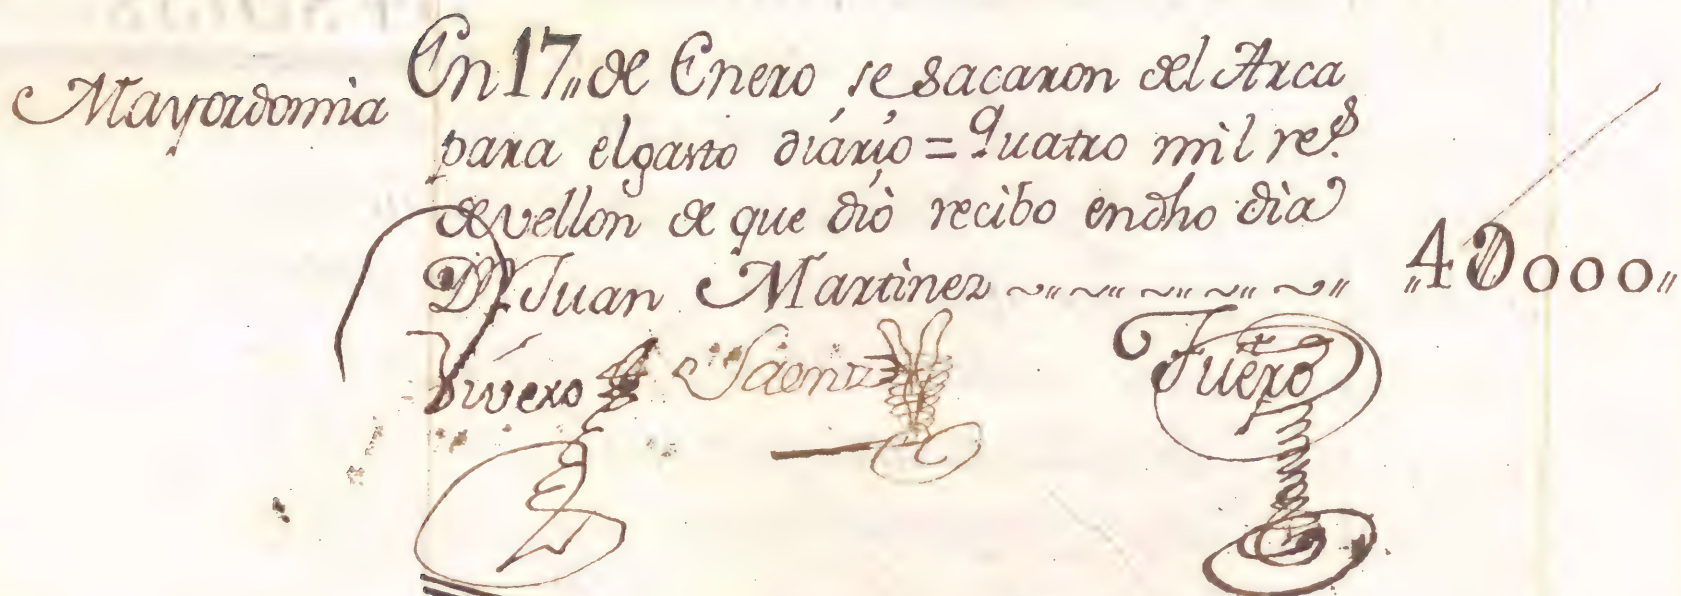 Mayordomia
En 17,, de Enero se sacaron del Arca
para el gasto diário = Quatro mil res.
de vellon de que diò recibo en dho dia
Dn. Juan Martinez ~,, ~,, ~,, ~,, ~,, ,,4D000,,
Vivero Saenz Fuero